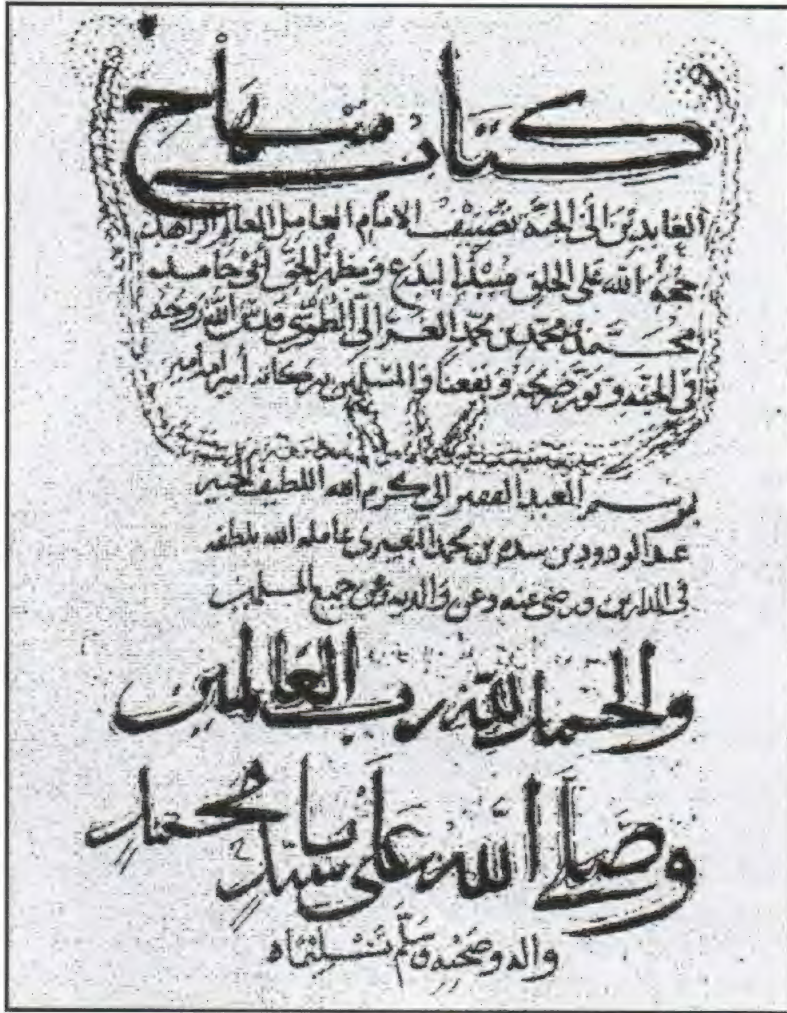 كتاب منهاج
العابدين الى الجنة تصنيف الامام العامل العالم الزاهد
حجة الله على الخلق مبيد البدع ومظهر الحق ابي حامد
محمد بن محمد بن محمد الغزالي الطوسي قدس الله روحه
في الجنة ونور ضريحه ونفعنا والمسلمين ببركاته امين امين
برسم العبد الفقير الى كرم الله اللطيف الخبير
عبد الودود بن محمد عامله الله بلطفه
في الدارين ورضي عنه وعن والديه وعن جميع المسلمين
والحمد لله رب العالمين
وصلى الله على سيدنا محمد
واله وصحبه وسلم تسليما